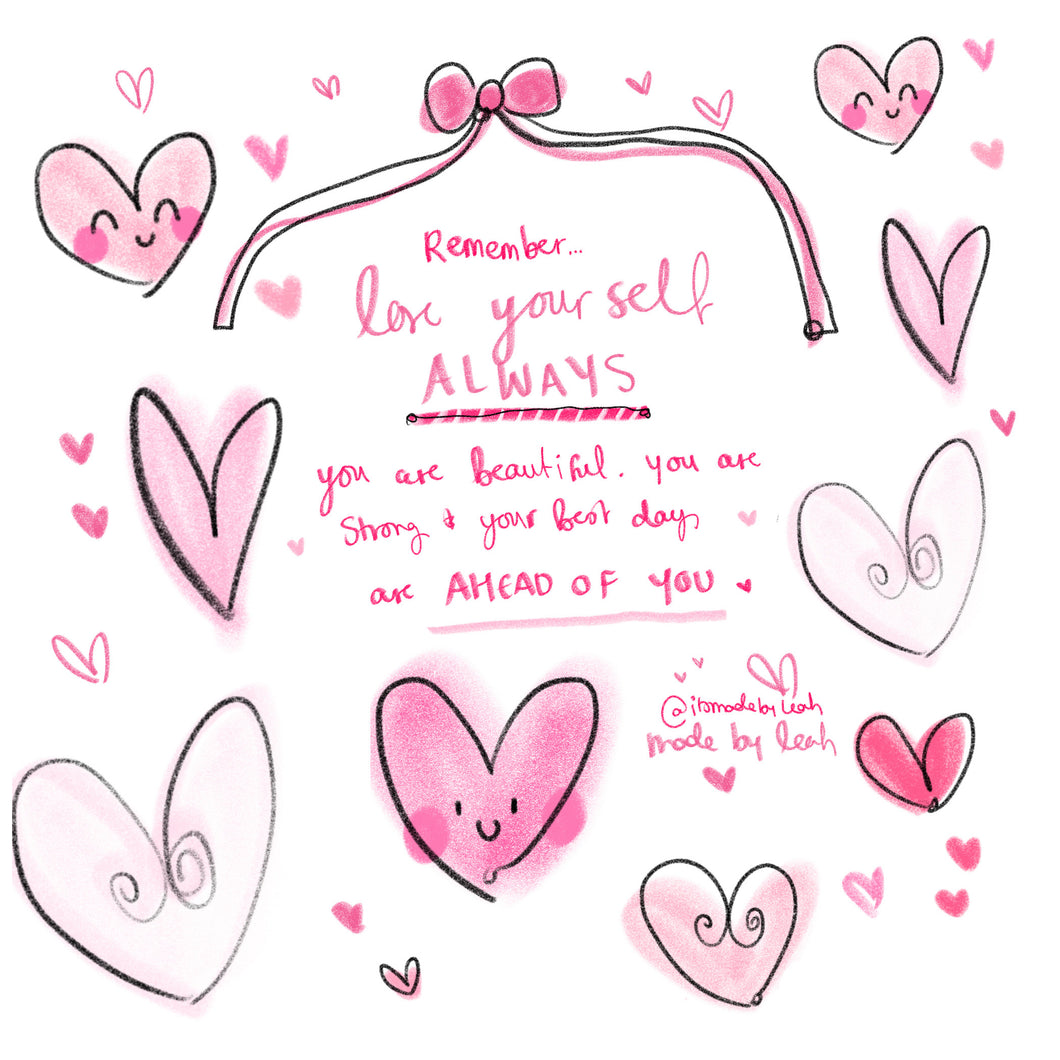 Remember...
love your self
ALWAYS
you are beautiful. you are
Strong & your best days
are AHEAD OF YOU
@itsmadebyleah
made by leah